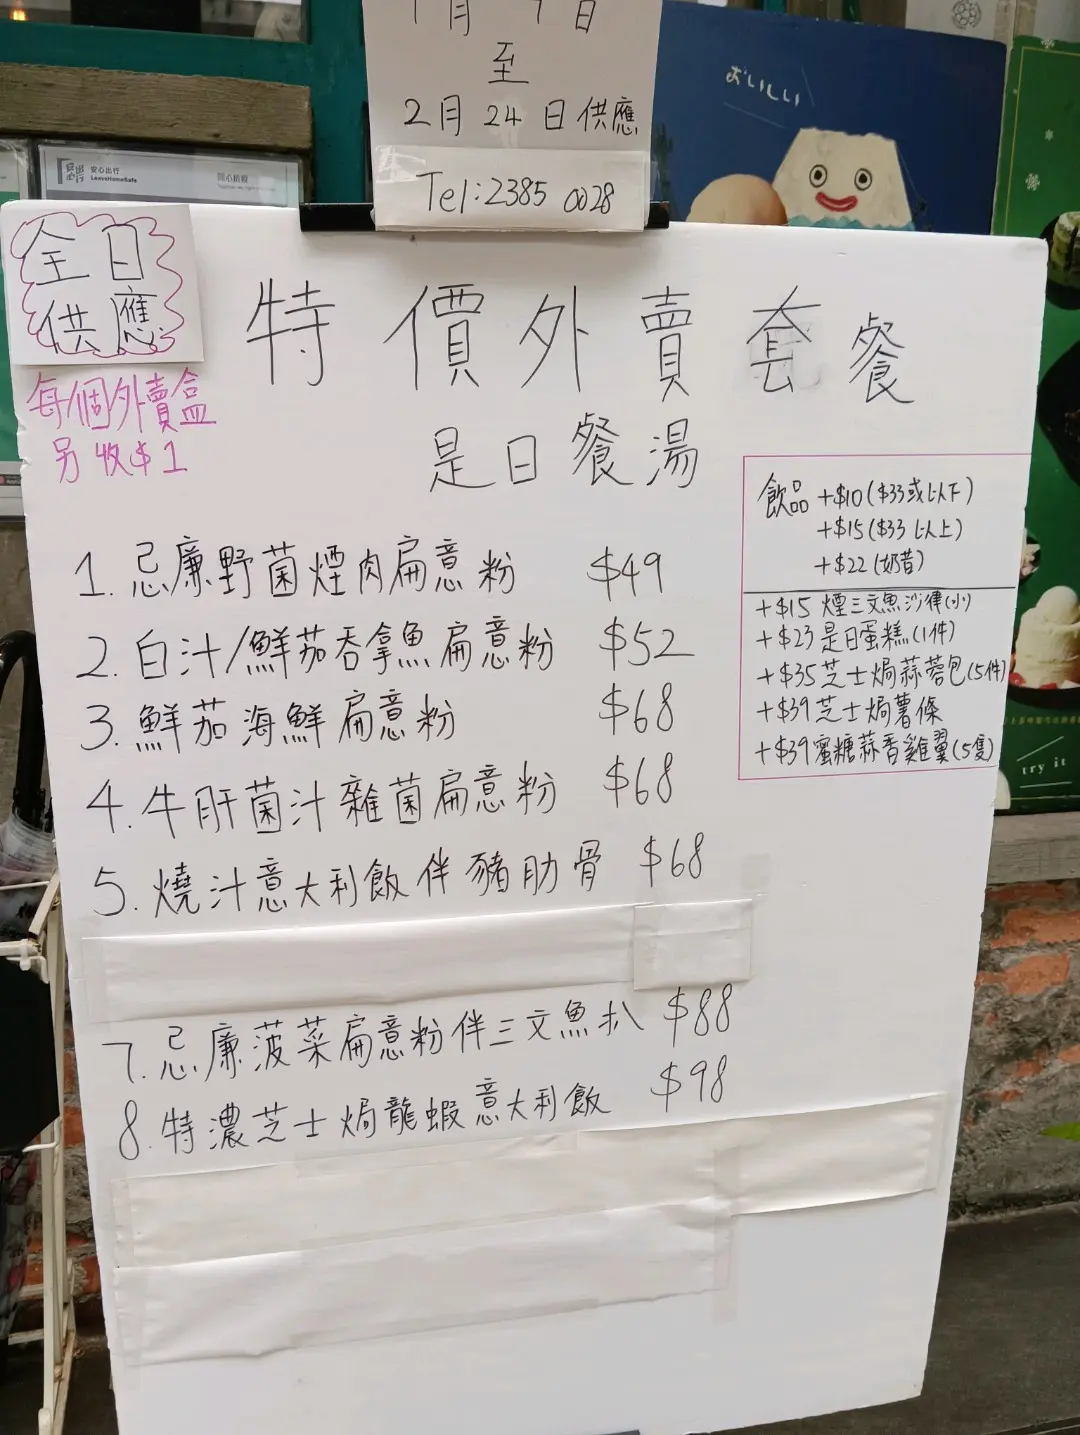 至
2月24日供應
Tel:2385 0028
おいしい
安心出行
LeaveHomeSafe
同心抗疫
全日
供應
每個外賣盒
另收$1
特價外賣套餐
是日餐湯
1. 忌廉野菌煙肉扁意粉 $49
2. 白汁/鮮茄吞拿魚扁意粉 $52
3. 鮮茄海鮮扁意粉 $68
4. 牛肝菌汁雜菌扁意粉 $68
5. 燒汁意大利飯伴豬肋骨 $68
7. 忌廉菠菜扁意粉伴三文魚扒 $88
8. 特濃芝士焗龍蝦意大利飯 $98
飲品 +$10($33或以下)
+$15($33以上)
+$22(奶昔)
+$15 煙三文魚沙律(小)
+$23是日蛋糕(1件)
+$35芝士焗蒜蓉包(5件)
+$39芝士焗薯條
+$39蜜糖蒜香雞翼(5隻)
try it